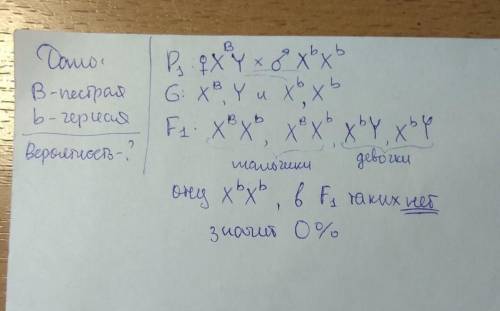 Дано:
B-пестрая
b-черная
Вероятность-?
P₁: ♀XᴮY × ♂ XᵇXᵇ
G: Xᴮ, Y и Xᵇ, Xᵇ
F₁: XᴮXᵇ, XᴮXᵇ, XᵇY, XᵇY
мальчики девочки
XᵇXᵇ, в F₁ таких нет
значит 0%